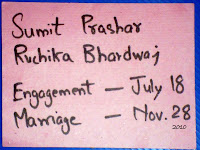 Sumit Prashar
Ruchika Bhardwaj
Engagement – July 18
Marriage – Nov. 28
2010